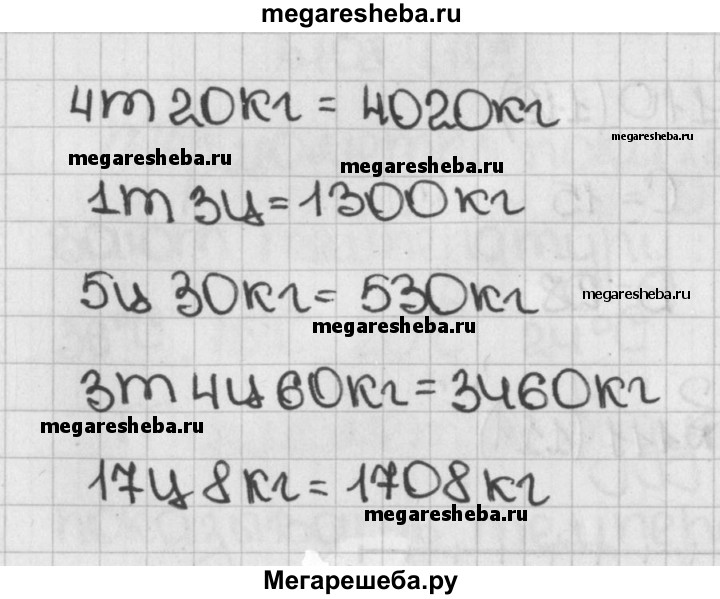 megaresheba.ru
4т 20кг = 4020кг
megaresheba.ru
megaresheba.ru
megaresheba.ru
1т 3ц = 1300кг
5ц 30кг = 530кг
megaresheba.ru
megaresheba.ru
3т 4ц 60кг = 3460кг
megaresheba.ru
17ц 8кг = 1708кг
megaresheba.ru
Мегарешеба.ру